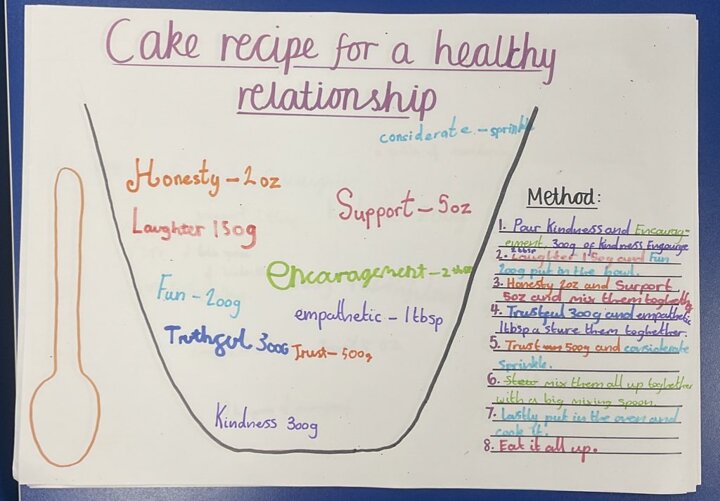 Cake recipe for a healthy
relationship
considerate - sprinkle
Honesty - 2 oz
Support - 5oz
Laughter 150g
encaragement - 2 tbsp
Fun - 200g
empathetic - 1tbsp
Truthgul 300G
Trust - 500g
Kindness 300g
Method:
1. Pour Kindness and Encouray-
ement. 300g of Kindness Engourge
2tbsp
2. Laughter 150g and Fun
200g put in the bowl.
3. Honesty 2oz and Support
5oz and mix them toghether
4. Trustgul 300g and empathetic
1tbsp a sture them toghether.
5. Trust 500g and considerate
sprinkle.
6. mix them all up toghether
with a big mixing spoon.
7. Lastly put in the oven and
cook it.
8. Eat it all up.